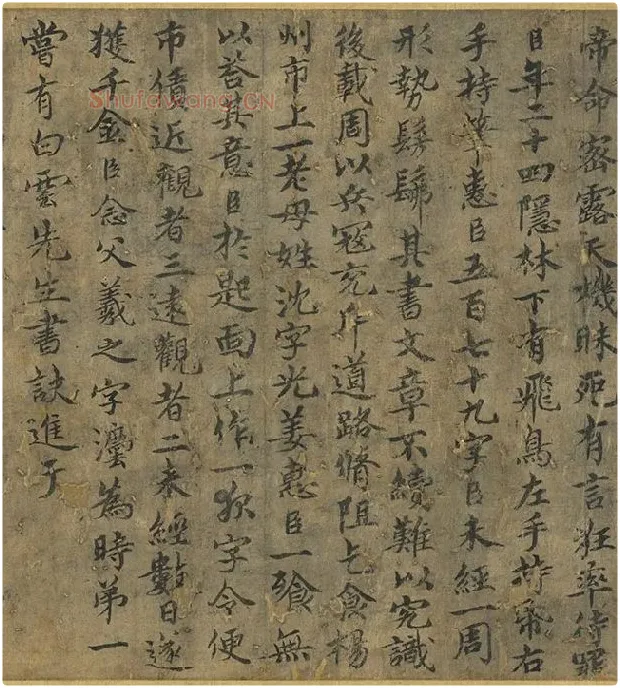 帝命密露天機昧死有言狂率待罪
臣年二十四隱林下有飛鳥左手持帋右
手持筆惠臣五百七十九字臣未經一周
形勢髣髴其書文章不續難以究識
後載周以兵寇充斥道路脩阻乞食楊
州市上一老母姓沈字光姜惠臣一飡無
以荅其意臣於匙面上作一夜字令便
市債近觀者三遠觀者二未經數日遂
獲千金臣念父羲之字灋為時第一
嘗有白雲先生書訣進于
Shufawang.CN